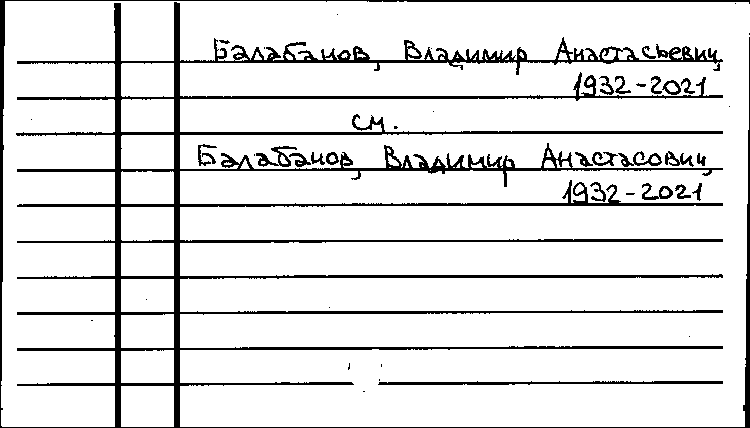 Балабанов, Владимир Анастасьевич,
1932-2021
см.
Балабанов, Владимир Анастасович,
1932-2021